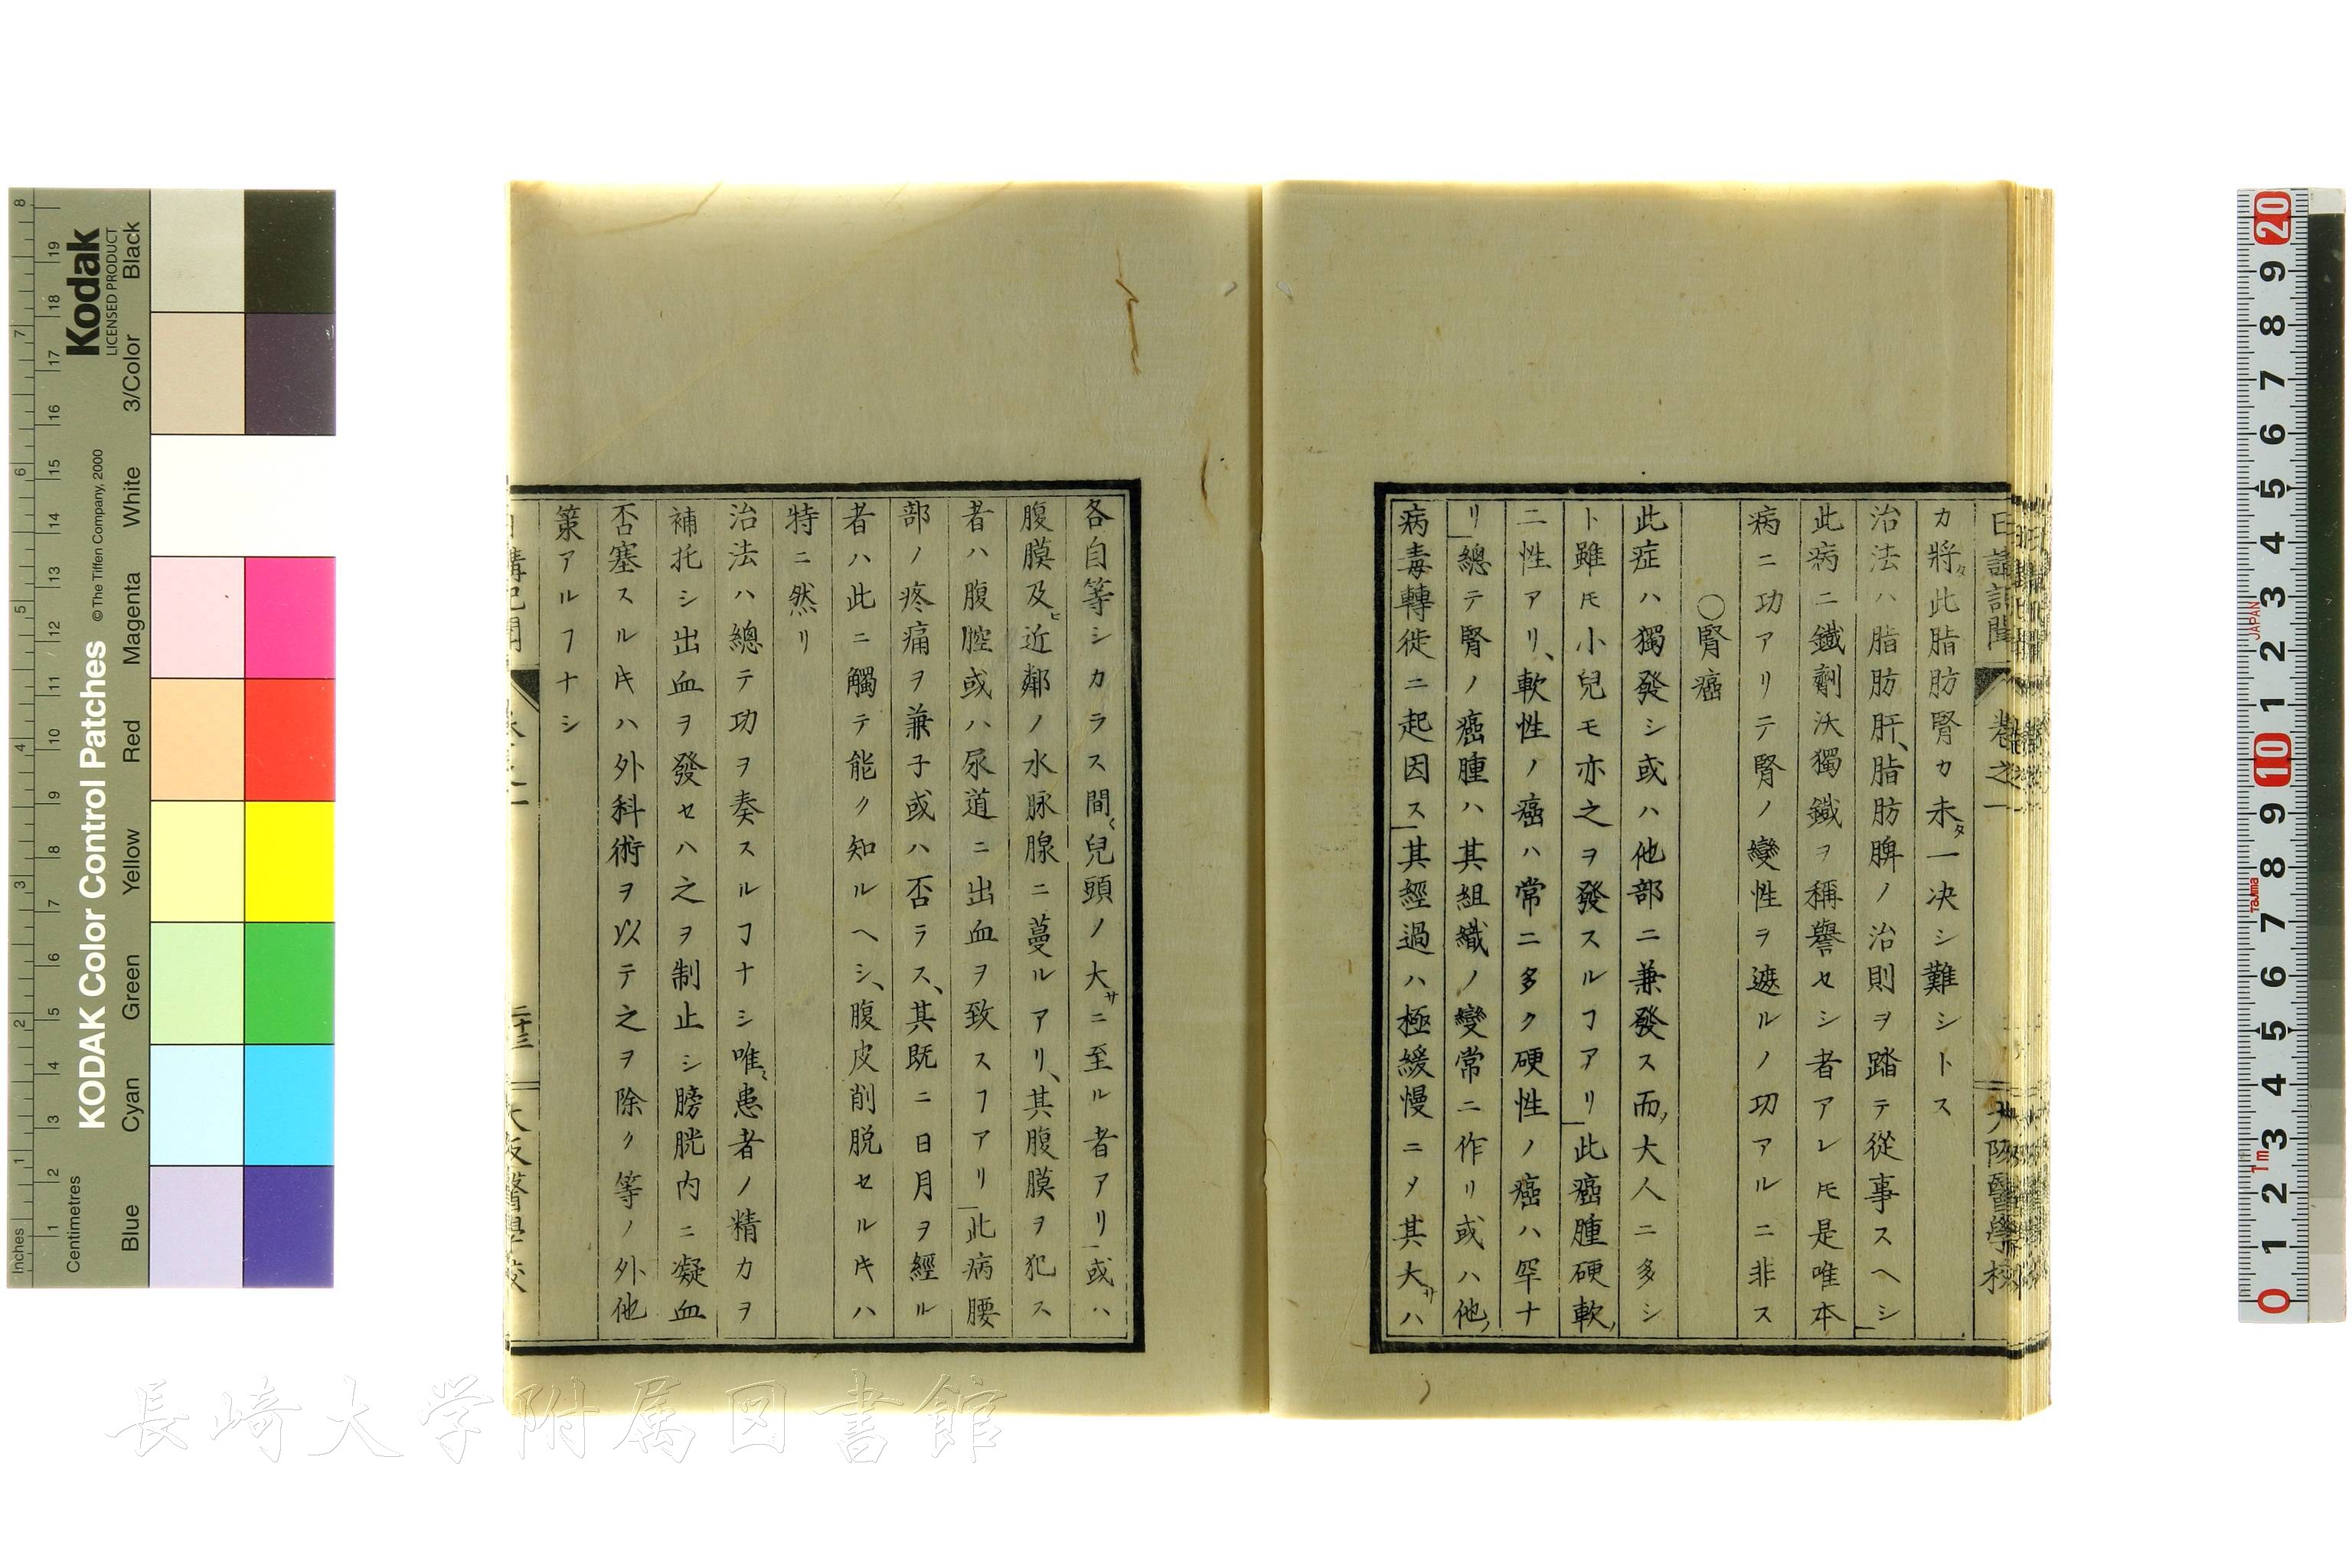 カ將タ此脂肪腎カ未タ一决シ難シトス
治法ハ脂肪肝、脂肪脾ノ治則ヲ踏テ從事スヘシ
此病ニ鐵劑沃獨鐵ヲ稱譽セシ者アレ𪜈是唯本
病ニ功アリテ腎ノ變性ヲ遮ルノ功アルニ非ス
○腎癌
此症ハ獨發シ或ハ他部ニ兼發ス而ノ大人ニ多シ
ト雖𪜈小兒モ亦之ヲ發スルヿアリ此癌腫硬軟ノ
二性アリ、軟性ノ癌ハ常ニ多ク硬性ノ癌ハ罕ナ
リ總テ腎ノ癌腫ハ其組織ノ變常ニ作リ或ハ他ノ
病毒轉徙ニ起因ス其經過ハ極緩慢ニメ其大サハ
日講記聞 卷之一 大阪醫學校
各自等シカラス間〻兒頭ノ大サニ至ル者アリ或ハ
腹膜及ヒ近鄰ノ水脉腺ニ蔓ルアリ、其腹膜ヲ犯ス
者ハ腹腔或ハ尿道ニ出血ヲ致スヿアリ此病腰
部ノ疼痛ヲ兼子或ハ否ラス、其既ニ日月ヲ經ル
者ハ此ニ觸テ能ク知ルヘシ、腹皮削脱セルトキハ
特ニ然リ
治法ハ總テ功ヲ奏スルヿナシ唯〻患者ノ精力ヲ
補托シ出血ヲ發セハ之ヲ制止シ膀胱内ニ凝血
否塞スルトキハ外科術ヲ以テ之ヲ除ク等ノ外他
策アルヿナシ
二十三
大阪醫學校
Inches
Centimetres
KODAK Color Control Patches
© The Tiffen Company, 2000
Kodak
LICENSED PRODUCT
Blue
Cyan
Green
Yellow
Red
Magenta
White
3/Color
Black
1 2 3 4 5 6 7 8
1 2 3 4 5 6 7 8 9 10 11 12 13 14 15 16 17 18 19
0 1 2 3 4 5 6 7 8 9 10 1 2 3 4 5 6 7 8 9 20
1m
Tajima
JAPAN
長崎大学附属図書館